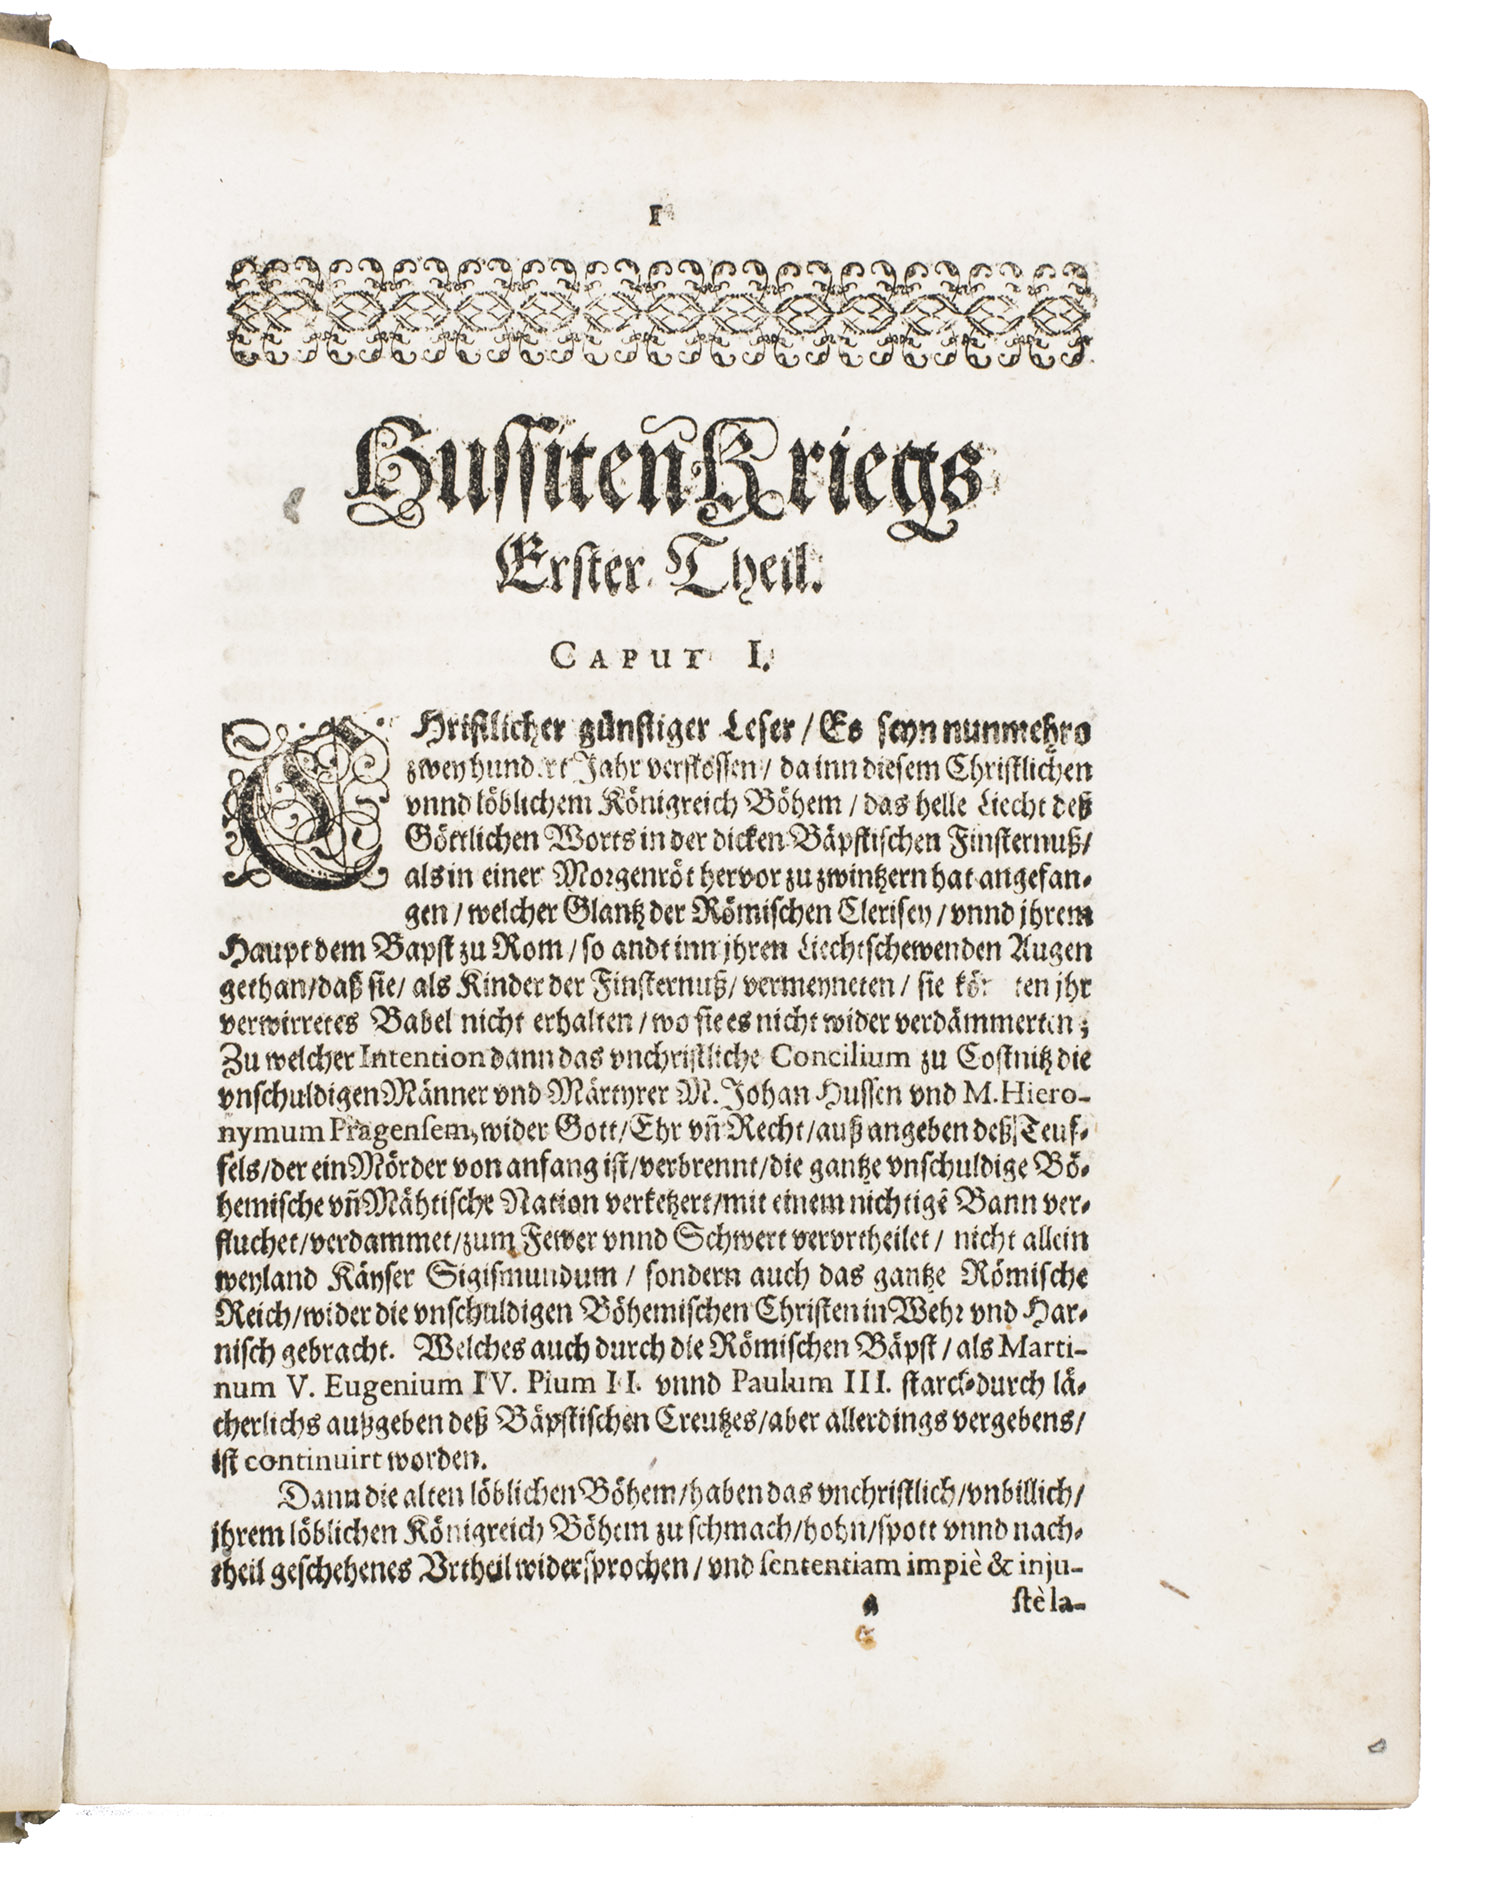 1
Hussiten Kriegs
Erster Theil.
CAPUT I.
CHristlicher günstiger Leser / Es seyn nunmehro
zwey hundert Jahr verflossen / da inn diesem Christlichen
vnnd löblichem Königreich Böhem / das helle Liecht deß
Göttlichen Worts in der dicken Bäpstischen Finsternuß /
als in einer Morgenröt hervor zu zwintzern hat angefan-
gen / welcher Glantz der Römischen Clerisey / vnnd jhrem
Haupt dem Bapst zu Rom / so andt inn jhren Liechtschewenden Augen
gethan / daß sie / als Kinder der Finsternuß / vermeyneten / sie ten jhr
verwirretes Babel nicht erhalten / wo sie es nicht wider verdämmerten ;
Zu welcher Intention dann das vnchristliche Concilium zu Costnitz die
vnschuldigen Männer vnd Märtyrer M. Johan Hussen vnd M. Hiero-
nymum Pragensem, wider Gott / Ehr vñ Recht / auß angeben deß Teuf-
fels / der ein Mörder von anfang ist / verbrennt / die gantze vnschuldige Bö-
hemische vñ Mährische Nation verketzert / mit einem nichtigẽ Bann ver-
fluchet / verdammet / zum Fewer vnnd Schwert vervrtheilet / nicht allein
weyland Käyser Sigismundum / sondern auch das gantze Römische
Reich / wider die vnschuldigen Böhemischen Christen in Wehr vnd Har-
nisch gebracht. Welches auch durch die Römischen Bäpst / als Marti-
num V. Eugenium IV. Pium II. vnnd Paulum III. starck durch lä-
cherlichs außgeben deß Bäpstischen Creutzes / aber allerdings vergebens /
ist continuirt worden.
Dann die alten löblichen Böhem / haben das vnchristlich / vnbillich /
jhrem löblichen Königreich Böhem zu schmach / hohn / spott vnnd nach-
theil geschehenes Vrtheil widersprochen / vnd sententiam impiè & inju-
a stè la-